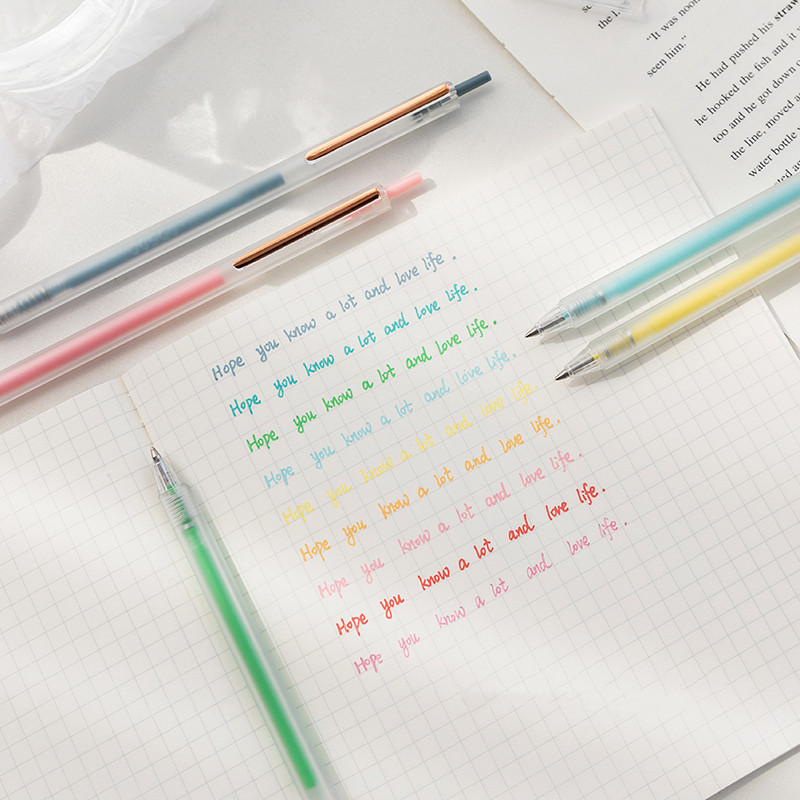 Hope you know a lot and love life.
Hope you know a lot and love life.
Hope you know a lot and love life.
Hope you know a lot and love life.
Hope you know a lot and love life.
Hope you know a lot and love life.
Hope you know a lot and love life.
Hope you know a lot and love life.
Hope you know a lot and love life.
"It was noon
seen him."
He had pushed his straw
he hooked the fish and it
too and he got down
the line, moved
water bottle